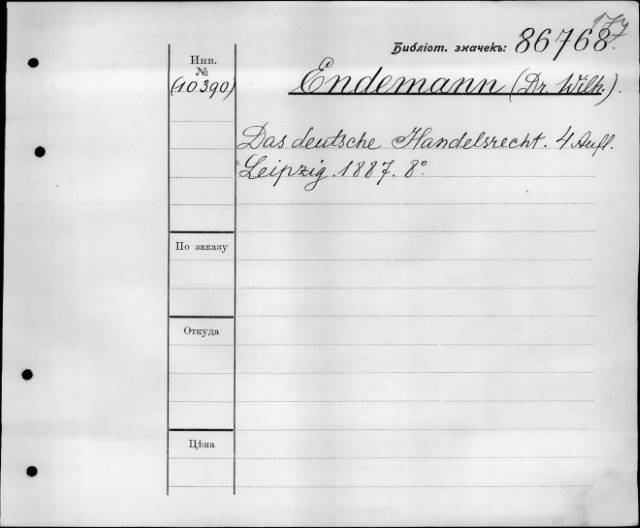 177
Библіот. значекъ: 86768.
Инв.
№
(10390)
Endemann (Dr. Wilh.).
Das deutsche Handelsrecht. 4 Aufl.
Leipzig. 1887. 8°
По заказу
Откуда
Цѣна